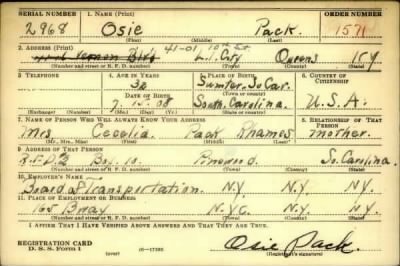 SERIAL NUMBER 1. NAME (Print) ORDER NUMBER
2968 Osie Pack. 1571
(First) (Middle) (Last)
2. ADDRESS (Print) 41-01 10th St
Vernon Blvd L.I. City Queens N.Y
(Number and street or R. F. D. number) (Town) (County) (State)
3. TELEPHONE 4. AGE IN YEARS 5. PLACE OF BIRTH 6. COUNTRY OF CITIZENSHIP
32 Sumter, So Car.
DATE OF BIRTH (Town or county)
7. 15. 08 South Carolina. U.S.A.
(Exchange) (Number) (Mo.) (Day) (Yr.) (State or country)
7. NAME OF PERSON WHO WILL ALWAYS KNOW YOUR ADDRESS 8. RELATIONSHIP OF THAT PERSON
Mrs Cecelia Pack Rhames mother.
(Mr., Mrs., Miss) (First) (Middle) (Last)
9. ADDRESS OF THAT PERSON
R.F.D.2 Box. 10. Pinewood. So. Carolina.
(Number and street or R. F. D. number) (Town) (County) (State)
10. EMPLOYER'S NAME
Board of Transportation. N.Y. N.Y.
11. PLACE OF EMPLOYMENT OR BUSINESS
165 Bway N.Y.C. N.Y. N.Y.
(Number and street or R. F. D. number) (Town) (County) (State)
I AFFIRM THAT I HAVE VERIFIED ABOVE ANSWERS AND THAT THEY ARE TRUE.
REGISTRATION CARD
D. S. S. FORM 1 16-17105 Osie Pack
(Registrant's signature)